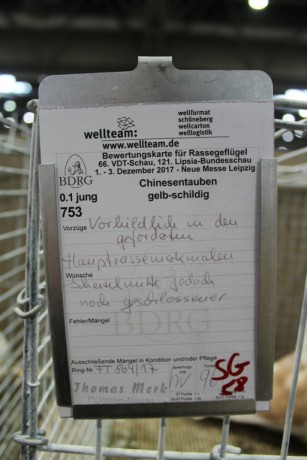 wellteam:
wellformat
schöneberg
wellcarton
welllogistik
www.wellteam.de
Bewertungskarte für Rassegeflügel
66. VDT-Schau, 121. Lipsia-Bundesschau
1. - 3. Dezember 2017 - Neue Messe Leipzig
BDRG
Chinesentauben
gelb-schildig
0.1 jung
753
Vorzüge Vorbildlich in den
geforderten
Hauptrassemerkmalen
Wünsche
jedoch
noch geschlossener
Fehler/Mängel
BDRG
Ausschließende Mängel in Kondition und/oder Pflege
Ring-Nr.
Thomas Merk
SG